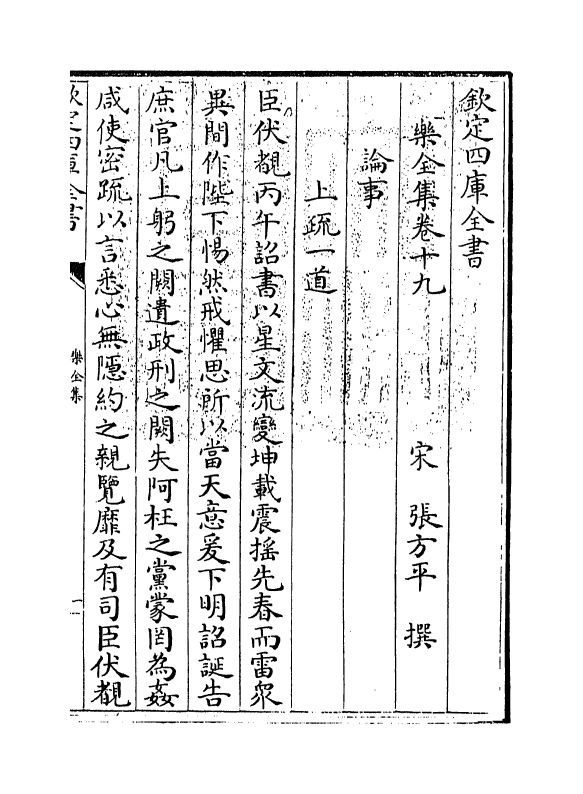 欽定四庫全書
樂全集卷十九　宋　張方平　撰
論事
上疏一道
臣伏覩丙午詔書以星文流變坤載震搖先春而雷衆
異間作陛下惕然戒懼思所以當天意爰下明詔誕告
庶官凡上躬之闕遺政刑之闕失阿枉之黨蒙罔為姦
咸使密疏以言悉心無隱約之親覽靡及有司臣伏覩
欽定四庫全書
樂全集
一